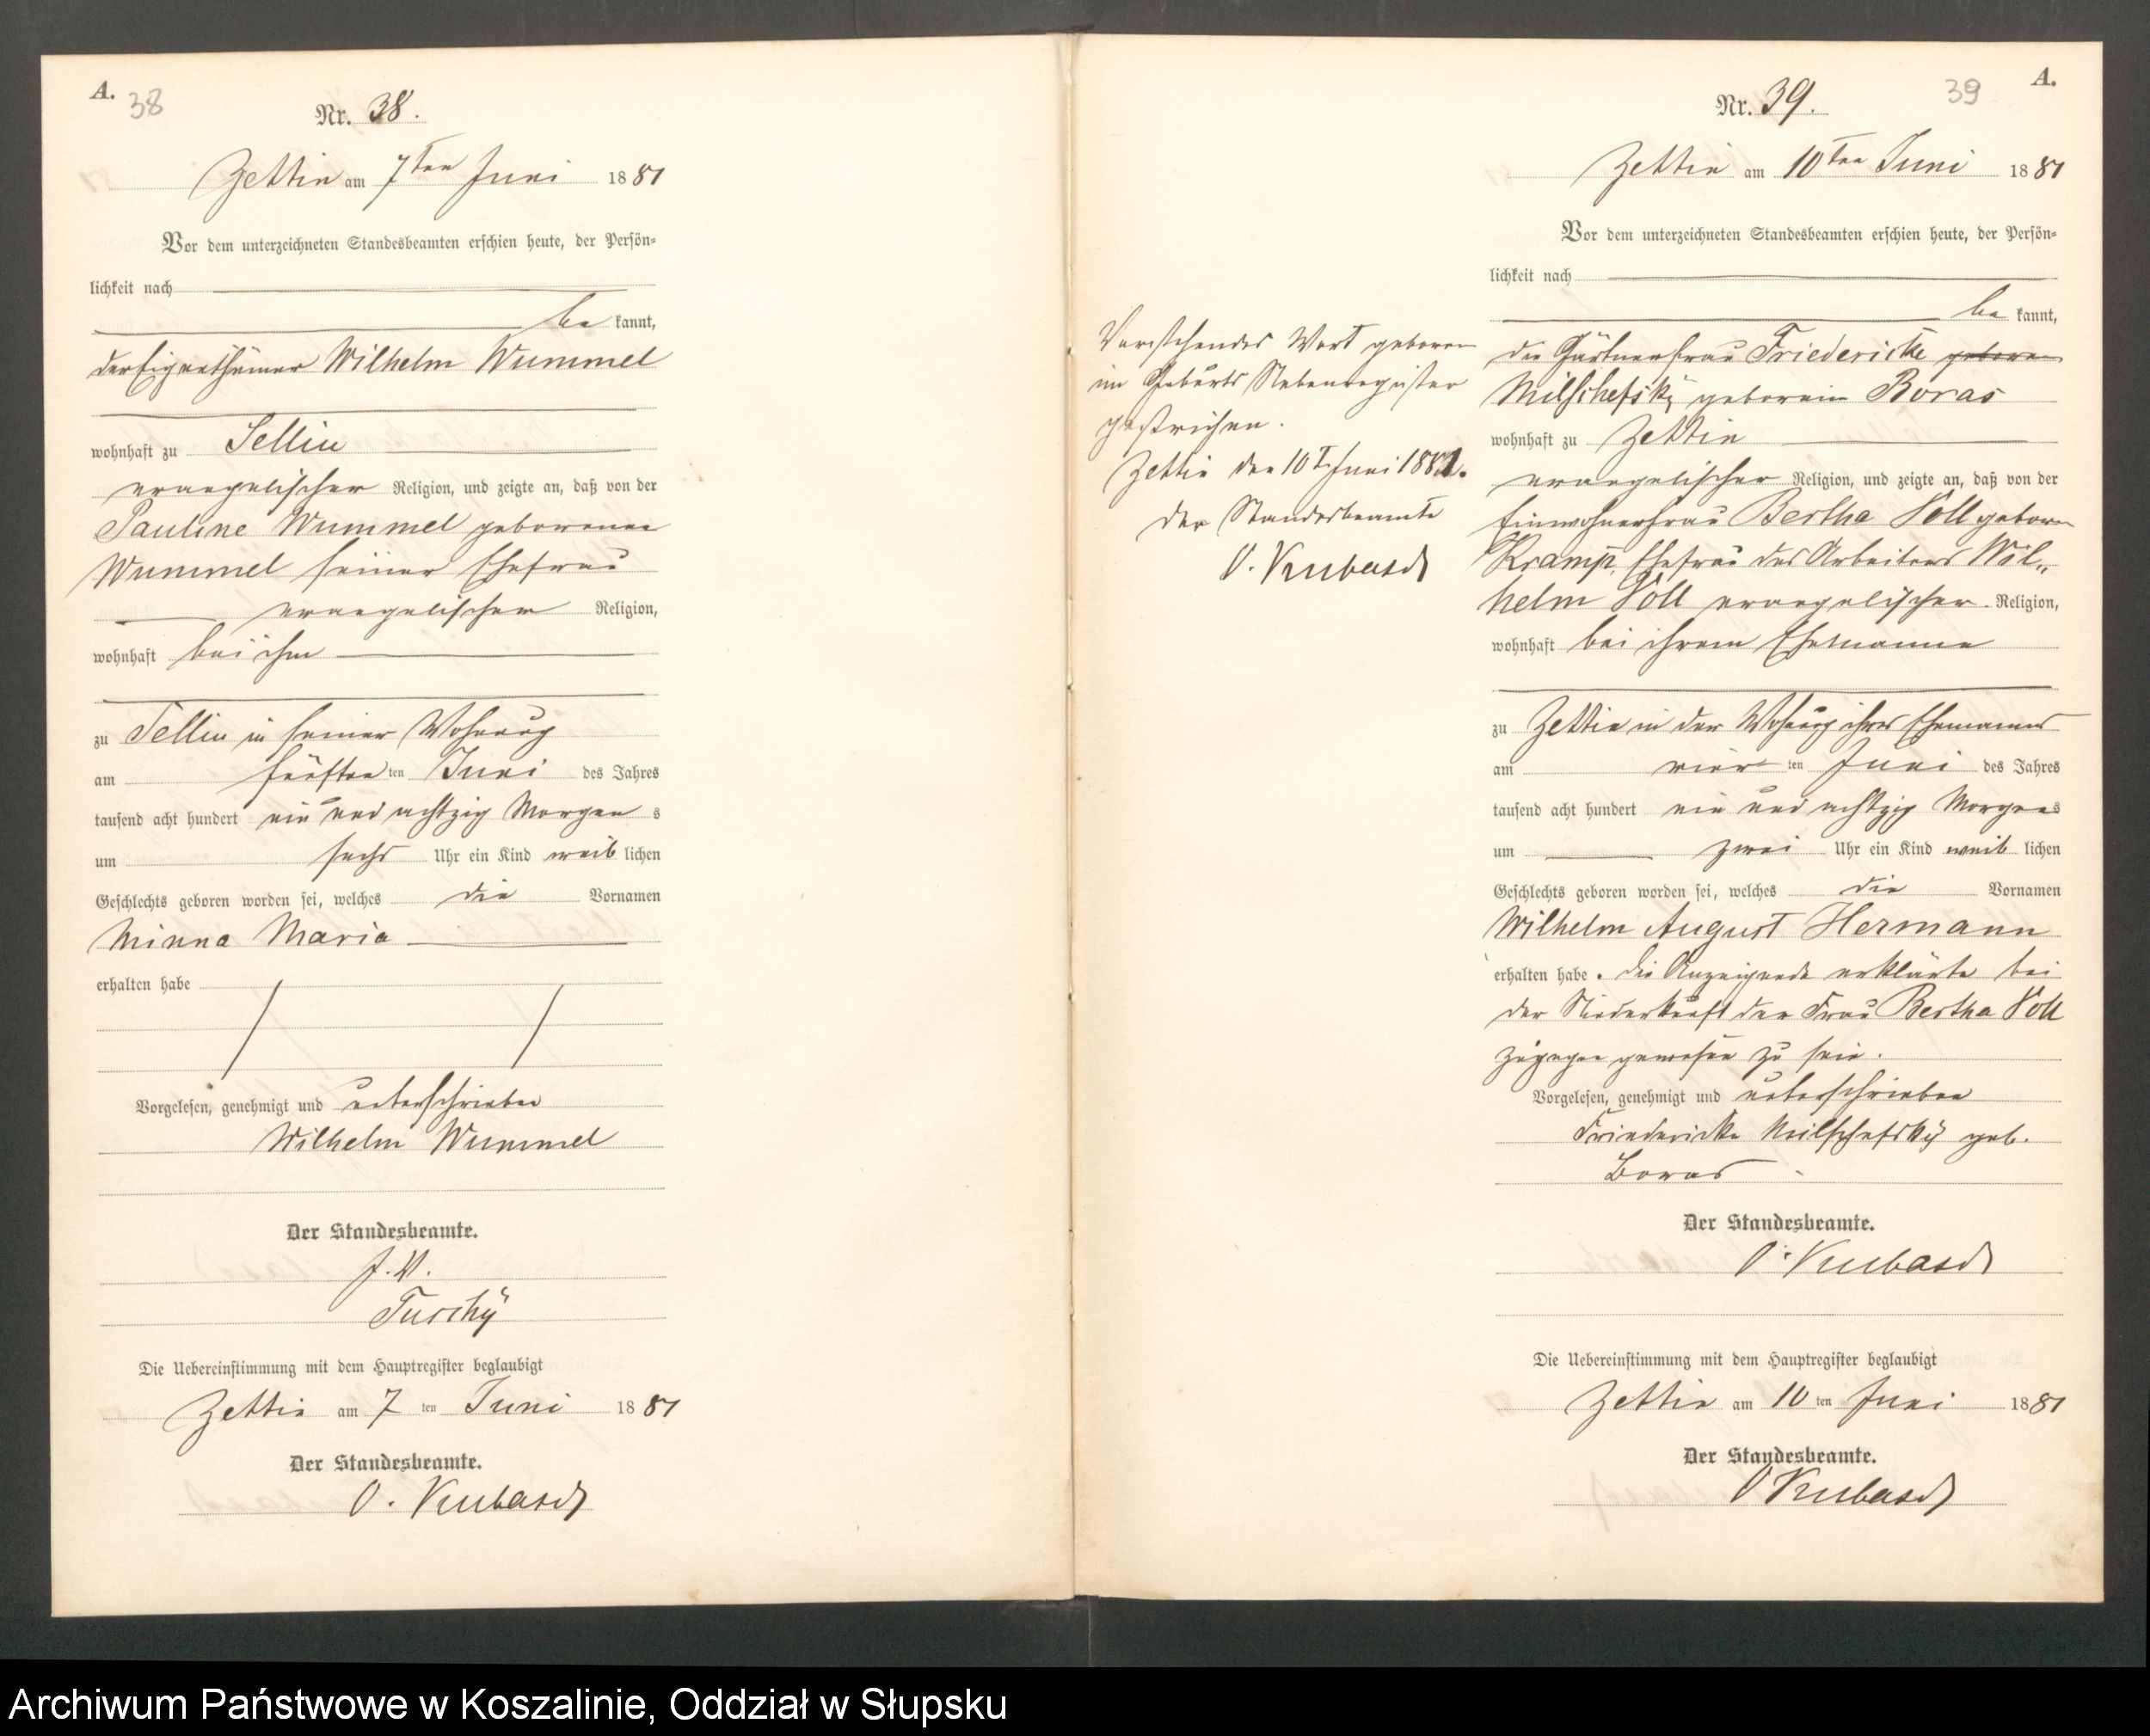 A.
38
Nr. 38.
Zettin am 7ten Juni 1881
Vor dem unterzeichneten Standesbeamten erschien heute, der Persön-
lichkeit nach
be kannt,
der Eigenthümer Wilhelm Wummel
wohnhaft zu Sellin
evangelischer Religion, und zeigte an, daß von der
Pauline Wummel geborenen
Wummel seiner Ehefrau
evangelischer Religion,
wohnhaft bei ihm
zu Sellin in seiner Wohnung
am fünften ten Juni des Jahres
tausend acht hundert ein und achtzig Morgen s
um sechs Uhr ein Kind weib lichen
Geschlechts geboren worden sei, welches die Vornamen
Minna Maria
erhalten habe
Vorgelesen, genehmigt und unterschrieben
Wilhelm Wummel
Der Standesbeamte.
J. V.
Tuschÿ
Die Uebereinstimmung mit dem Hauptregister beglaubigt
Zettin am 7 ten Juni 1881
Der Standesbeamte.
O. Kubasch
A.
39
Nr. 39.
Zettin am 10ten Juni 1881
Vor dem unterzeichneten Standesbeamten erschien heute, der Persön-
lichkeit nach
be kannt,
die Gärtnerfrau Friedericke geboren
Milschefsky geboren Boras
wohnhaft zu Zettin
evangelischer Religion, und zeigte an, daß von der
Einwohnerfrau Bertha Voll geboren
Kramp, Ehefrau des Arbeiters Wil„
helm Voll evangelischer Religion,
wohnhaft bei ihrem Ehemanne
zu Zettin in der Wohnung ihres Ehemannes
am vier ten Juni des Jahres
tausend acht hundert ein und achtzig Morgens
um zwei Uhr ein Kind weib lichen
Geschlechts geboren worden sei, welches die Vornamen
Wilhelm August Hermann
erhalten habe. Die Anzeigende erklärte bei
der Niederkunft der Frau Bertha Voll
zugegen gewesen zu sein.
Vorgelesen, genehmigt und unterschrieben
Friedericke Milschefsky geb.
Boras
Der Standesbeamte.
O. Kubasch
Die Uebereinstimmung mit dem Hauptregister beglaubigt
Zettin am 10 ten Juni 1881
Der Standesbeamte.
O Kubasch
Vorstehendes Wort geboren
im Geburts Nebenregister
gestrichen.
Zettin den 10 t Juni 1881.
Der Standesbeamte
O. Kubasch
Archiwum Państwowe w Koszalinie, Oddział w Słupsku